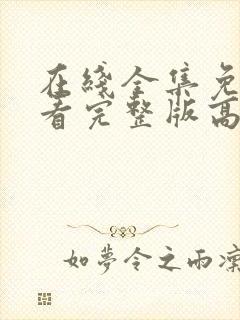 在綫全集免
看完整版高
如夢令之雨凜